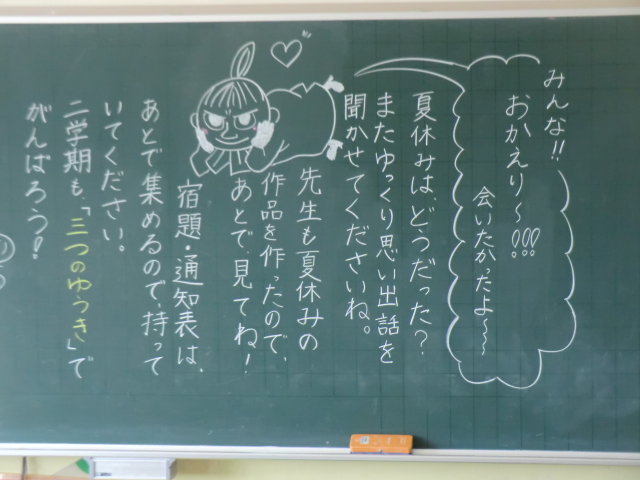 みんな!!
おかえり〜!!!
会いたかったよ〜〜
夏休みは、どうだった？
またゆっくり思い出話を
聞かせてくださいね。
先生も夏休みの
作品を作ったので、
あとで、見てね！
宿題・通知表は、
あとで集めるので、持って
いてください。
二学期も、「三つのゆうき」で
がんばろう！